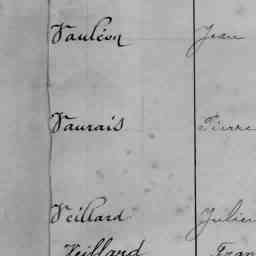 Vauléon Jean
Vaurais Pierre
Veillard Julien
Veillard Fran